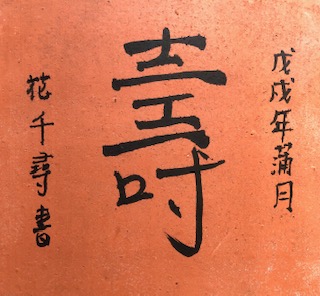 戊戌年蒲月
壽
花千尋書